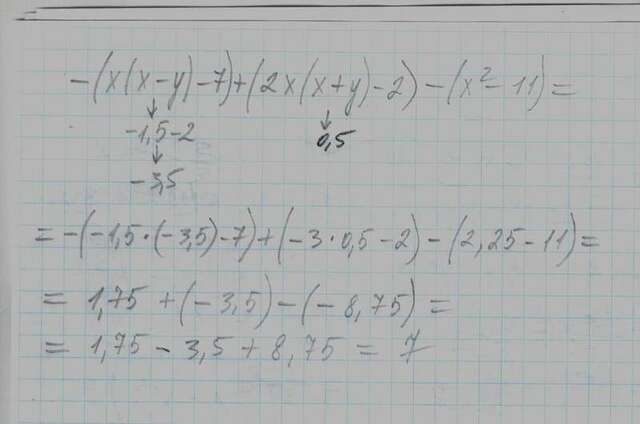 -(x(x-y)-7)+(2x(x+y)-2)-(x²-11)=
↓ ↓
-1,5-2 0,5
↓
-3,5
=-(-1,5·(-3,5)-7)+(-3·0,5-2)-(2,25-11)=
= 1,75 +(-3,5)-(-8,75)=
= 1,75 - 3,5 + 8,75 = 7